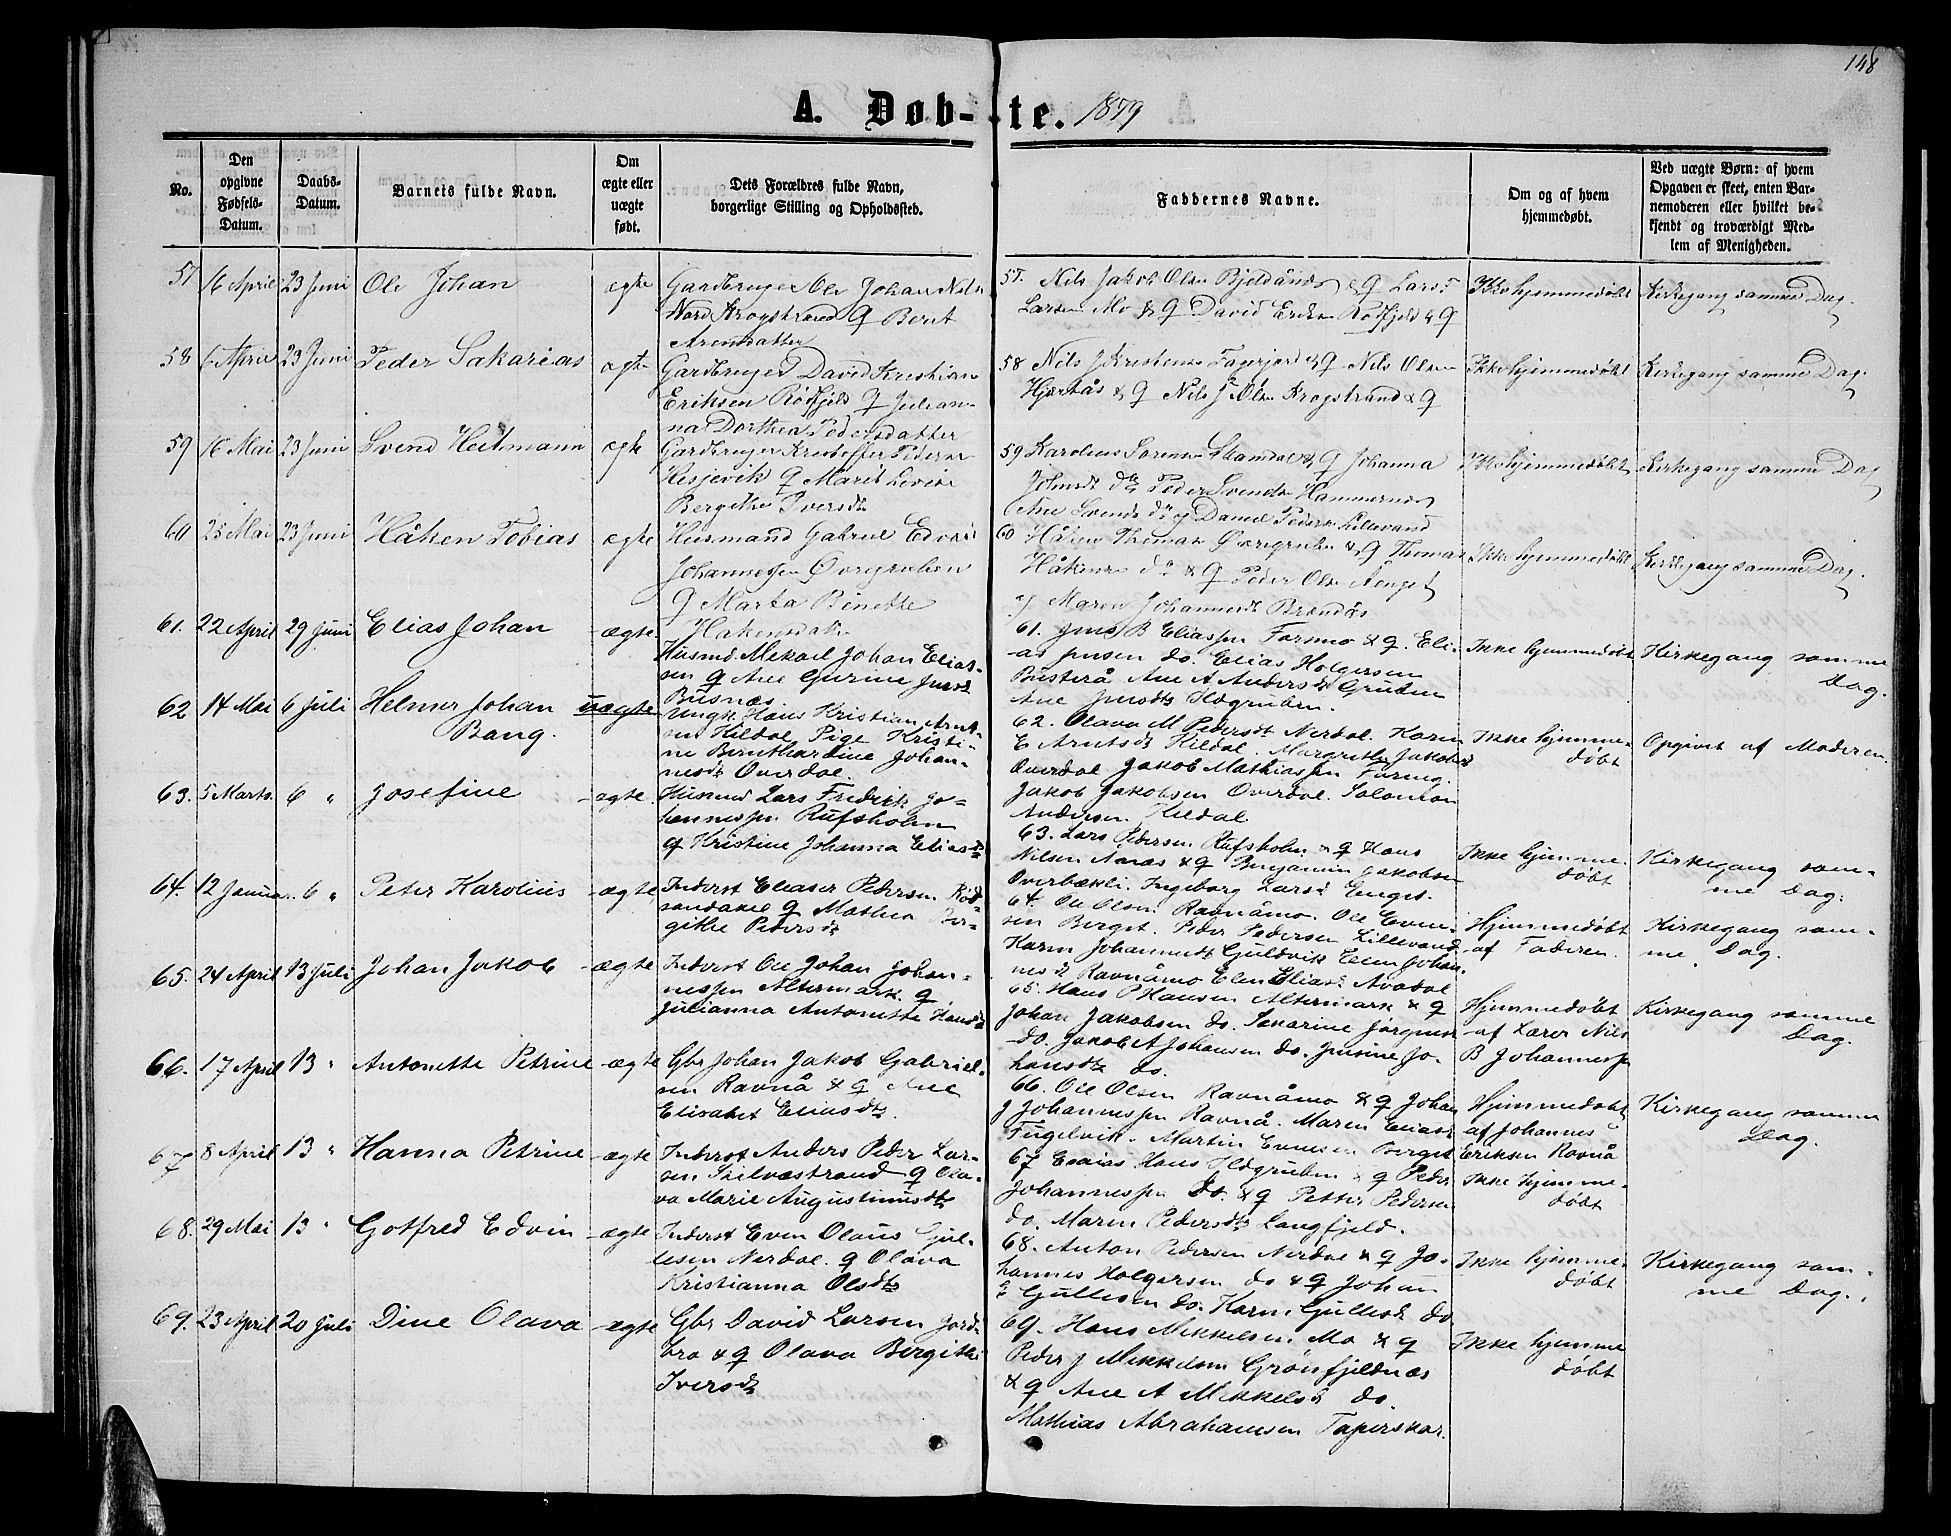 148
A. Døb-te. 1879
No.
Den opgivne Fødsels-Datum.
Daabs-Datum.
Barnets fulde Navn.
Om ægte eller uægte født.
Dets Forældres fulde Navn, borgerlige Stilling og Opholdssted.
Faddernes Navne.
Om og af hvem hjemmedøbt.
Ved uægte Børn: af hvem Opgaven er skeet, enten Barnemoderen eller hvilket bekjendt og troværdigt Medlem af Menigheden.
57 16 April 23 Juni Ole Johan ægte
Gardbruger Ole Johan Nils
Nord Krogstrand & Berit
Arensdatter
57. Nils Jakob Olsen & Lars
Larsen Mo & David Eriks Rödfjeld &
Ikke hjemmedøbt Kirkegang samme Dag.
58 6 April 23 Juni Peder Sakarias ægte
Gardbruger David Kristian
Eriksen Rödfjeld & Julian-
na Dorthea Pedersdatter
58 Nils J Kristensen & Nils Olsen
Hjartås & Nils J Olsen Krogstrand &
Ikke hjemmedøbt Kirkegang samme Dag.
59 16 Mai 23 Juni Svend Heitmann ægte
Gardbruger Kristoffer Pedersen
& Marit
Bergithe Iversdt
59 Karolius Sorensen & Johanna
Johnsdt do Peder Svends Hammernes
Ane Svends do & Daniel Peders Lillevand
Ikke hjemmedøbt Kirkegang samme Dag
60 25 Mai 23 Juni Håken Tobias ægte
Husmand Gabriel Edvard
Johannessen Övregruben
& Marta Binette
Hakensdatr
60 Håken Thomas Övregruben & Thomas
Håkens do & Peder Olsen Aenget
Maren Johannesdt Brendås
Ikke hjemmedøbt Kirkegang samme Dag.
61. 22 April 29 Juni Elias Johan ægte
Husmd Mekail Johan Elias-
sen & Ane Gurine Jensdt
Busnæs.
61. Jens B Eliassen Forsmo & Eli-
as Jensen do. Elias Holgersen
Busterå Ane A Andersdt Gruben
Ane Jensdtr Ildgruben.
Ikke hjemmedöbt Kirkegang samme
Dag.
62 14 Mai 6 Juli Helmer Johan
Bang. uægte
Ungk. Hans Kristian Arnt-
sen Hildal Pige Kristi-
ne Bernthardine Johan-
nesdt Overdal.
62. Olava M Pedersdt Nerdal. Karen
E Arntsdt Hildal. Margrethe Jakobsd
Overdal Jakob Mathiassen Foring.
Jakob Jakobsen Overdal. Salomon
Andersen Hildal
Ikke hjemme-
döbt
Opgivet af Moderen.
63. 5 Marts. 6 " Josefine ægte.
Husmd Lars Fredrik Jo-
hannessen Rufsholm
& Kristine Johanna Eliasdt
63. Lars Pedersen Rufsholm & & Hans
Nilsen Naras & & Benjamin Jakobsen
Overbækli. Ingeborg Larsd Enget.
Ikke hjemme-
döbt
Kirkegang sam-
me Dag.
64. 12 Januar. 6 " Peter Karolius ægte
Inderst Eliaser Pedersen Röd-
sandaxel & Mathea Ber-
githe Pedersdt
64. Ole Olsen Ravnåmo. Ole Even-
sen Berget. Peder Pedersen Lillevand
Karen Johannesdt Guldvik Elen Johan-
nesd Ravnåmo Elen Eliasd Avadal
Hjemmedöbt
af Faderen.
Kirkegang sam-
me Dag.
65. 24 April 13 Juli Johan Jakob ægte
Inderst Ole Johan Johan-
nessen Altermark &
Julianna Antonette Hansdt
65. Hans P Hansen Altermark & &
Johan Jakobsen do. Sakarine Jörgensd
do. Jakob A Johansen do. Jensine Jo-
hansdtr do.
Hjemmedöbt
af Lærer Nils
B Johannessen
Kirkegang samme
Dag.
66. 17 April 13 " Antonette Petrine ægte
Gbr Johan Jakob Gabriel-
sen Ravnå & & Ane
Elisabet Eliasdtr.
66. Ole Olsen Ravnåmo & & Johan
J Johannessen Ravnå. Maren Eliasd
Fugelvik. Martin Evensen Berget
Hjemmedöbt
af Johannes
Eriksen Ravnå
Kirkegang samme
Dag.
67 8 April 13 " Hanna Petrine ægte
Inderst Anders Peder Lar-
sen Skilvastrand & Ola-
va Marie Augustinusdtr
67 Esaias Hans Ildgruben & & Peder
Johannessen do. & & Petter Pedersen
do. Maren Pedersdtr Langfjeld.
Ikke hjemme-
döbt
68. 29 Mai 13 " Gotfred Edvin ægte
Inderst Even Olaus Gul-
lesen Nerdal. & Olava
Kristianna Olsdtr
68. Anton Pedersen Nerdal & & Jo-
hannes Holgersen do & & Johan
E Gullesen do. Karen Gullesd do
Ikke hjemme-
döbt
Kirkegang sam-
me Dag.
69. 23 April 20 Juli Dine Olava ægte
Gbr David Larsen Jord-
bro & & Olava Bergithe
Iversdt
69. Hans Mikkelsen Mo & &
Peder J Mikkelsen Grönfjeldnæs
& & Ane A Mikkelsd do.
Mathias Abrahamsen Taperskar.
Ikke hjemme
döbt